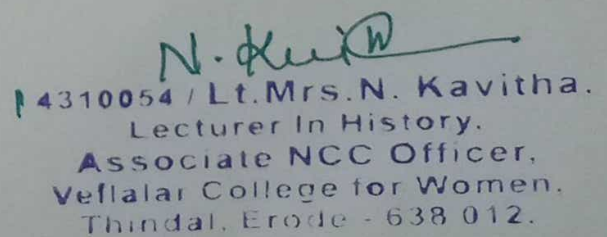 N. Kavi
4310054 / Lt.Mrs.N. Kavitha.
Lecturer In History.
Associate NCC Officer,
Vellalar College for Women.
Thindal, Erode - 638 012.